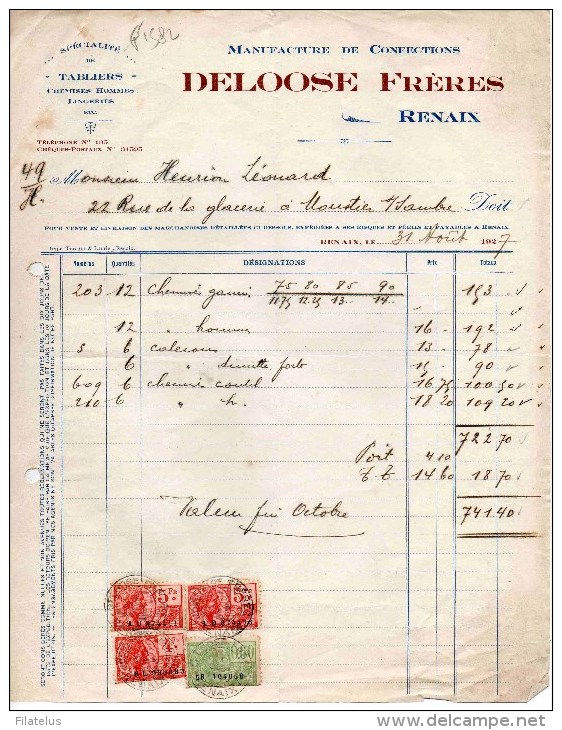 P1582
SPÉCIALITÉ
DE
TABLIERS
CHEMISES HOMMES
LINGERIES
ETC.
TÉLÉPHONE Nº 115
CHÈQUES-POSTAUX Nº 31595
MANUFACTURE DE CONFECTIONS
DELOOSE FRÈRES
RENAIX
49
H.
Monsieur Henrion Léonard
22 Rue de la glacerie à Moustier s/Sambre Doit
POUR VENTE ET LIVRAISON DES MARCHANDISES DÉTAILLÉES CI-DESSOUS, EXPÉDIÉES A SES RISQUES ET PÉRILS ET PAYABLES A RENAIX
RENAIX, LE 31 Août 1927
Numéros Quantités DÉSIGNATIONS Prix Totaux
203 12 75 80 85 90 153
11.75 12.25 13.. 14..
12 " hommes 16 - 192
5 6 caleçons 13 - 78
6 15 - 90
609 6 chemises coutil 16 75 100.50
210 6 " 18 20 109.20
722 70
Port 4 10
14.60 18.70
741.40
Valeur fin Octobre
5 Fr
5 Fr
4 Fr
GR 104068
Filatelus
delcampe.net